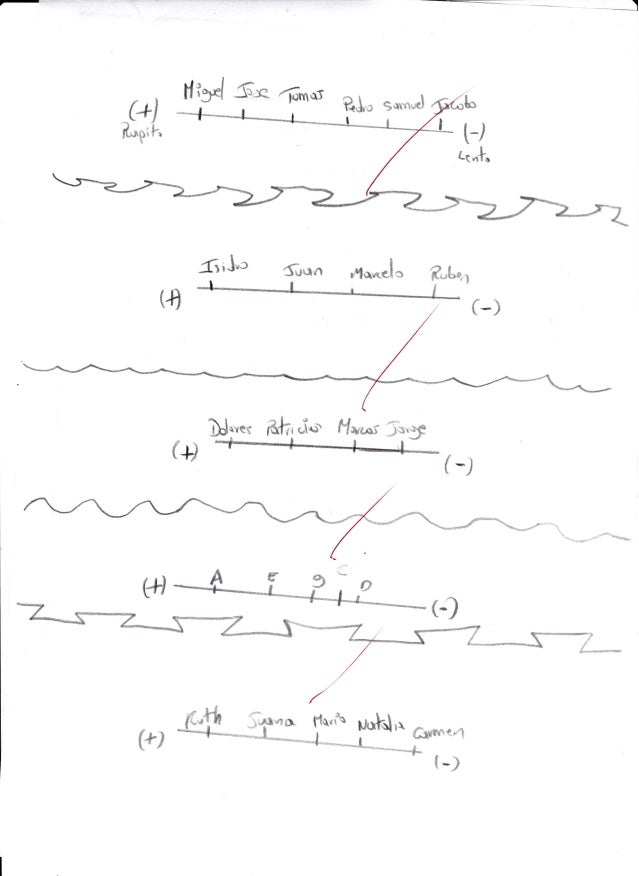 Miguel Jose Tomas Pedro Samuel Jacobo
(+) (-)
Rapito Lento
Isidro Juan Marcelo Ruben
(+) (-)
Dolores Patricias Marcos Jorge
(+) (-)
A E 9 C D
(+) (-)
Ruth Juana Maria Natalia Carmen
(+) (-)